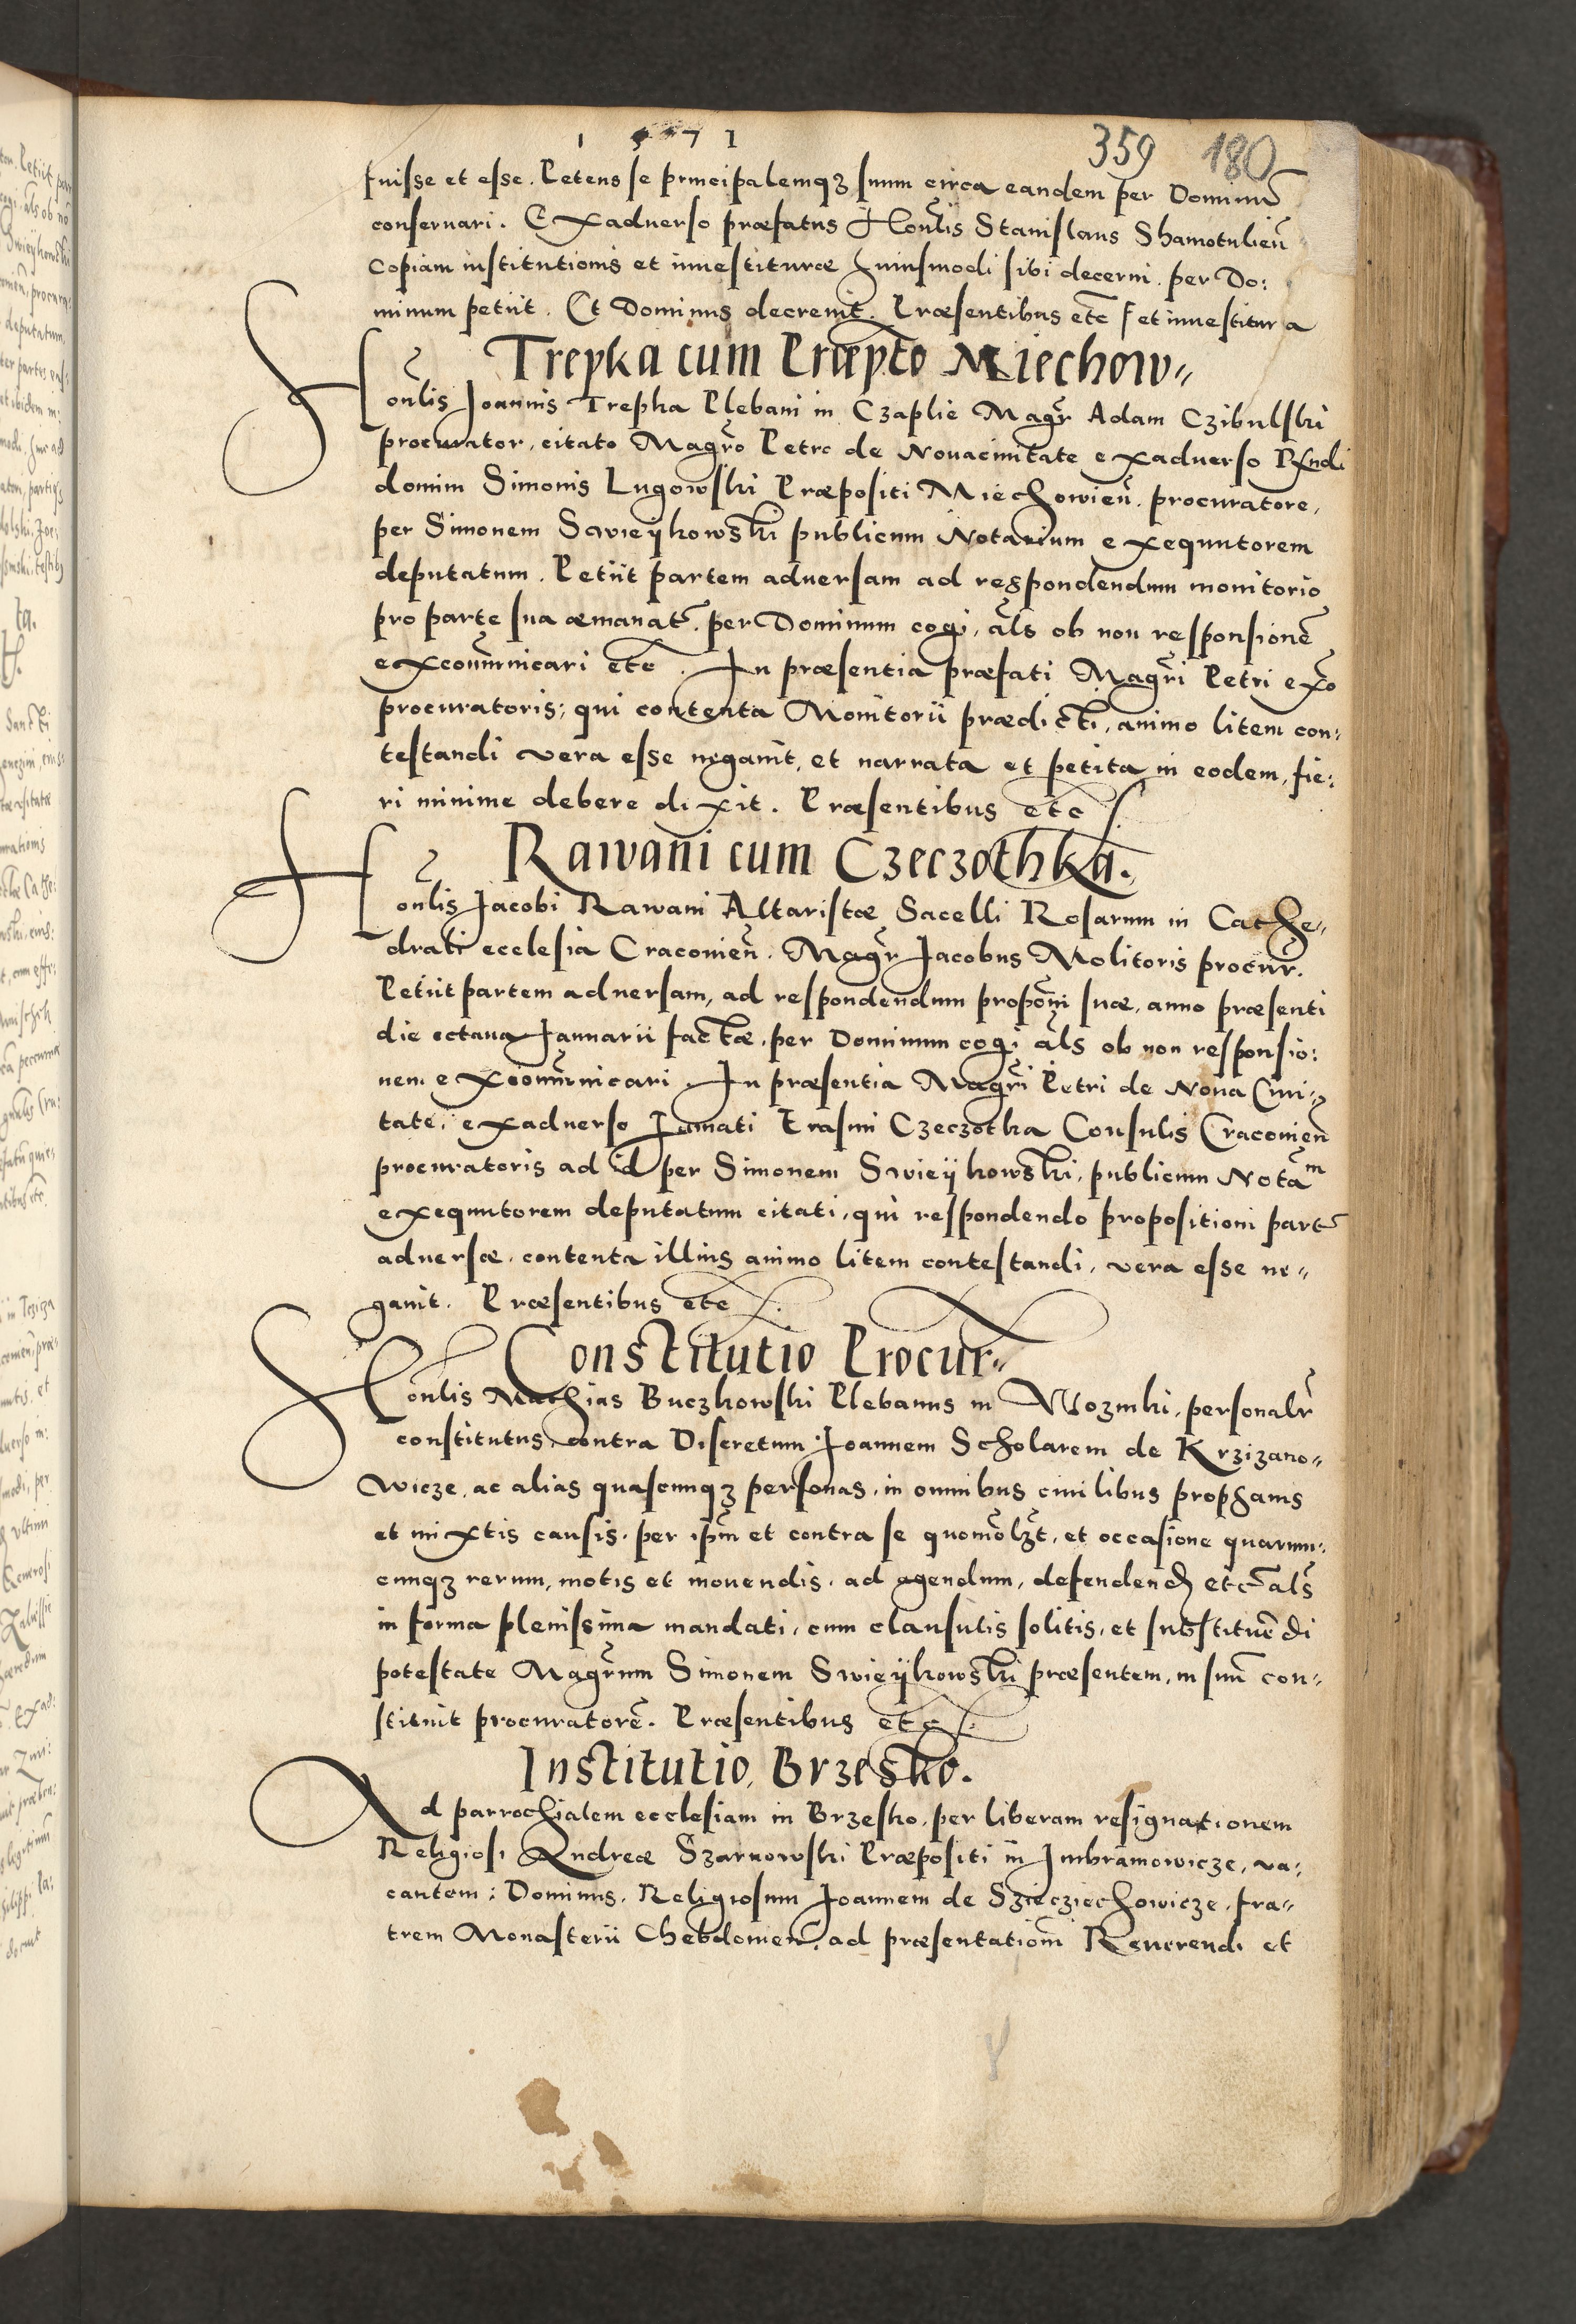 1571
359 180
fuisse et esse. Petens se principalemq3 suum circa eandem per Dominū
conseruari. Exaduerso præfatus Honlis Stanislaus Shamotulień
copiam institutionis et inuestituræ huiusmodi sibi decerni per Do:
minum petiit. Et Dominus decreuit. Præsentibus etc et inuestitura
Trepka cum Præpto Miechow„
Honlis Joannis Trepka Plebani in Czaplie Magr Adam Czibulski
procurator, citato Magro Petro de Nouaciuitate exaduerso Rñdi
domini Simonis Lugowski Præpositi Miechowień. procuratore,
per Simonem Swieykowski publicum Notarium exequutorem
deputatum. Petiit partem aduersam ad respondendum monitorio
pro parte sua æmanat. per Dominum cogi, als ob non responsionē
excommunicari etc. In præsentia præfati Magri Petri exo
procuratoris; qui contenta Monitorii prædicti, animo litem con:
testandi vera esse negauit, et narrata et petita in eodem, fie:
ri minime debere dixit. Præsentibus etc
Rawani cum Czeczothka.
Honlis Jacobi Rawani Altaristæ Sacelli Rosarum in Cathe„
drali ecclesia Cracouień. Magr Jacobus Molitoris procur.
Petiit partem aduersam, ad respondendum proponi suæ, anno præsenti
die octaua Januarii factæ, per Dominum cogi als ob non responsio:
nem excommunicari. In præsentia Magri Petri de Noua Ciui:
tate, exaduerso Famati Erasmi Czeczotka Consulis Cracouień
procuratoris ad id per Simonem Swieykowski, publicum Notam
exequutorem deputatum citati, qui respondendo propositioni part
aduersæ, contenta illius animo litem contestandi, vera esse ne„
gauit. Præsentibus etc
Constitutio Procur„
Honlis Mathias Buczkowski Plebanus in Wozniki, personalr
constitutus, contra Discretum Joannem Scholarem de Krzizano„
wicze, ac alias quascunq3 personas, in omnibus ciuilibus prophanis
et mixtis causis, per ipm et contra se quomolzt, et occasione quarum:
cunq3 rerum, motis et mouendis, ad agendum, defendend etc als
in forma plenissima mandati, cum clausulis solitis, et substituēdi
potestate Magrum Simonem Swieykowski præsentem, in suū con„
stituit procuratorē. Præsentibus etc
Institutio Brzesko.
Ad parrochialem ecclesiam in Brzesko, per liberam resignationem
Religiosi Andreæ Szarnowski Præpositi in Imbramowicze, va:
cantem: Dominus, Religiosum Joannem de Sziecziechowicze, fra„
trem Monasterii Chebdouień, ad præsentationem Reuerendi et